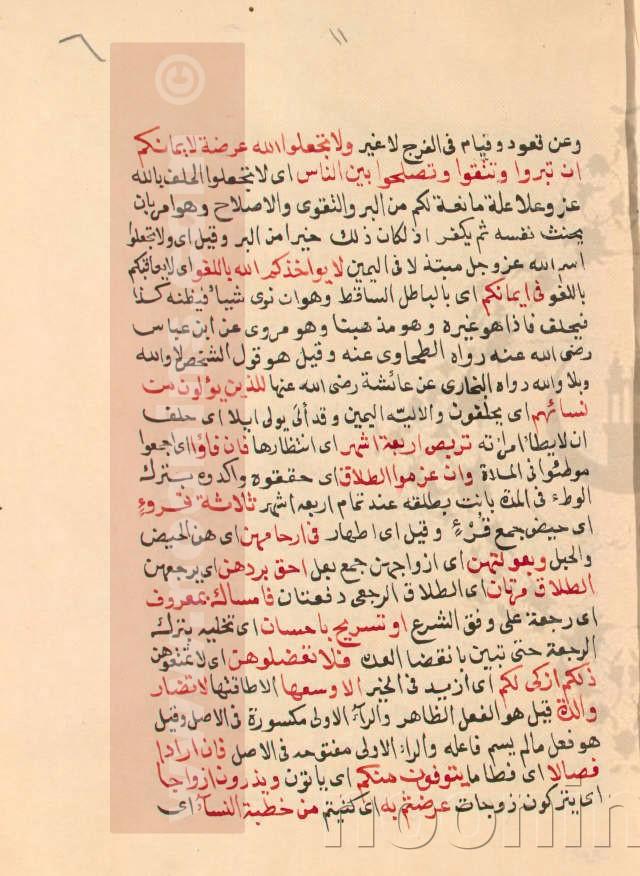 ١١
وعن قعود وقيام فى الفرج لا غير ولا تجعلوا الله عرضة لايمانكم
ان تبروا وتتقوا وتصلحوا بين الناس اى لا تجعلوا الحلف بالله
عز وعلا علة مانعة لكم من البر والتقوى والاصلاح وهو امر بان
يحنث نفسه ثم يكفر اذ لكان ذلك خيرا من البر وقيل اى ولا تجعلوا
اسم الله عز وجل مبتذلا فى اليمين لا يواخذكم الله باللغو اى لا يعاقبكم
باللغو فى ايمانكم اى بالباطل الساقط وهو ان نوى شيئا فيظنه كذا
فيحلف فاذا هو غيره وهو مذهبنا وهو مروى عن ابن عباس
رضى الله عنه رواه الطحاوى عنه وقيل هو قول الشخص لا والله
وبلا والله رواه البخارى عن عائشة رضى الله عنها للذين يؤلون من
نسائهم اى يحلفون والاليّه اليمين وقد ألى يولى ايلا اى حلف
ان لا يطأ امراته تربص اربعة اشهر اى انتظارها فان فاؤا اى رجعوا
فى المدة وان عزموا الطلاق اى حققوه واكدوه بترك
الوطء فى المدة بانت بطلقه عند تمام اربعه اشهر ثلاثة قروءٍ
اى حيض جمع قُرْءٍ وقيل اى اطهار فى ارحامهن اى هن الحيض
والحبل وبعولتهن اى ازواجهن جمع بعل احق بردهن اى برجعهن
الطلاق مرتان اى الطلاق الرجعى دفعتان فامساك بمعروف
اى رجعة على وفق الشرع او تسريح باحسان اى تخليه بترك
الرجعة حتى تبين بانقضا العدة فلا تعضلوهن اى لا تمنعوهن
ذلكم ازكى لكم اى ازيد فى الخير الا وسعها الا طاقتها لا تضار
والدة قيل هو الفعل الظاهر والراء الاولى مكسورة فى الاصل وقيل
هو فعل مالم يسم فاعله والراء الاولى مفتوحه فى الاصل فان ارادا
فصالا اى فطاما يتوفون منكم اى ياتون ويذرون ازواجا
اى يتركون زوجات عرضتم به اى كنيتم من خطبة النساء اى
noorlin